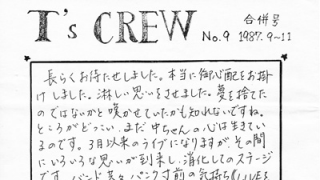 T's CREW
合併号
No.9 1987.9~11
長らくお待たせしました。本当に御心配をお掛
けしました。淋しい思いをさせました。夢を捨てた
のではないかと嘆かせていたかも知れないですね。
ところがどっこい、まだ中ちゃんの心は生きてい
るのです。3月以来のライブになりますが、その間
にいろいろな思いが到来し、消化してのステージ
です。バンド共々パンク寸前の気持ち LIVEを